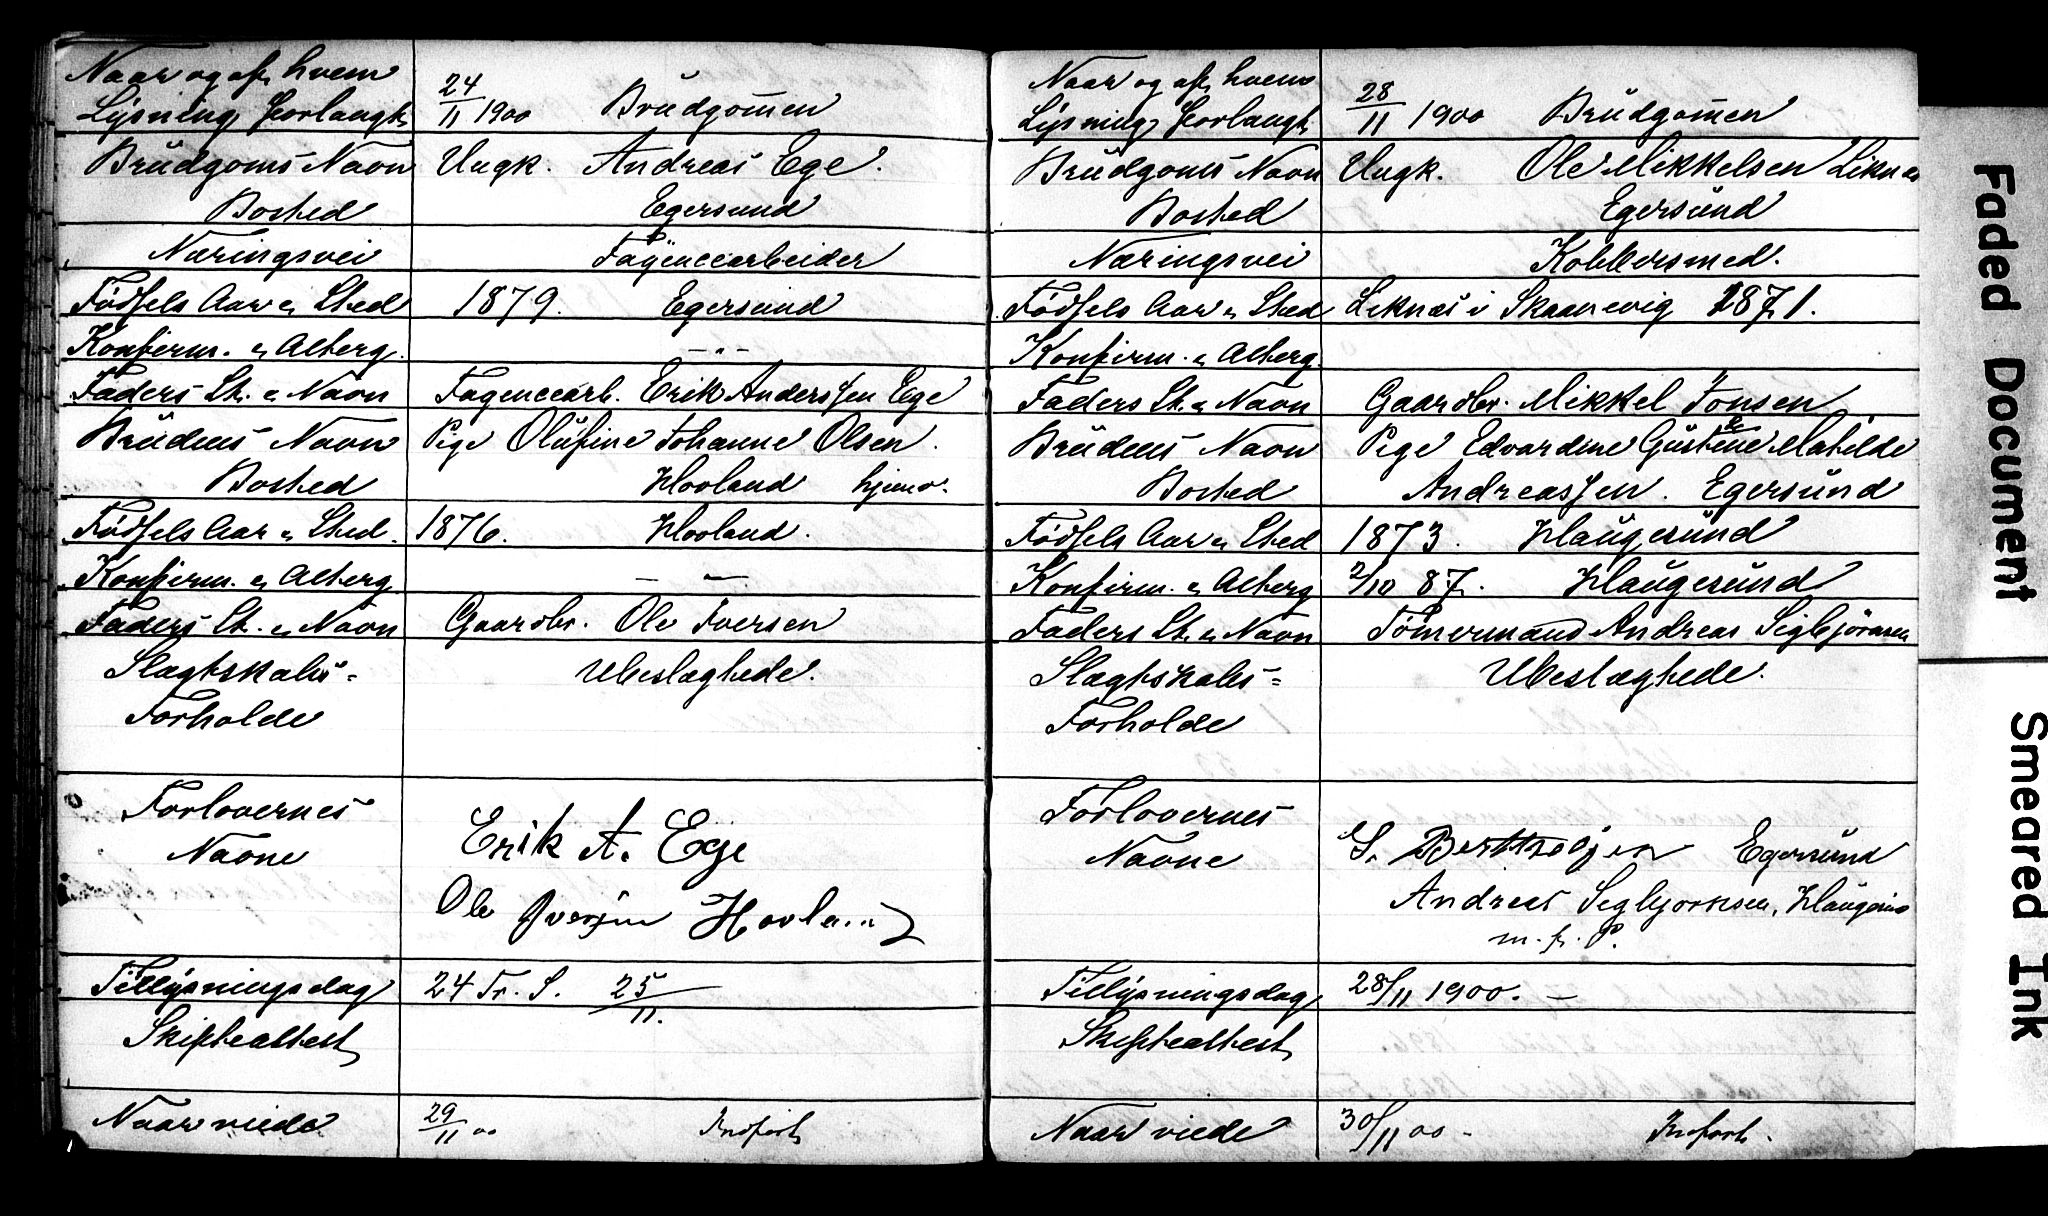 Naar og af hvem
Lysning forlangt 24/11 1900 Brudgommen
Brudgoms Navn Ungk. Andreas Ege.
Bosted Egersund
Næringsvei Fayencearbeider
Fødsels Aar og Sted 1879. Egersund
Konfirm. og Attergj. — " —
Faders St. og Navn Fayencearb. Erik Anderssen Ege
Brudens Navn Pige Olufine Johanne Olsen.
Bosted Hovland hjemv.
Fødsels Aar og Sted. 1876. Hovland.
Konfirm. og Attergj — " —
Faders St. og Navn Gaardbr. Ole Iversen
Slagtskabs- Ubeslægtede.
Forholde
Forlovernes Erik A. Ege
Navne
Ole Iversen Hovland
Tillysningsdag 24 Tr. S. 25/11.
Skifteattest
Naar viede 29/11 00 Indført
Naar og af hvem
Lysning forlangt 28/11 1900 Brudgommen
Brudgoms Navn Ungk. Ole Mikkelsen Liknes
Bosted Egersund
Næringsvei Kobbersmed.
Fødsels Aar og Sted Liknes i Skaanevig 1871.
Konfirm. og Attergj.
Faders St. og Navn Gaardbr. Mikkel Jonsen
Brudens Navn Pige Edvardine Gustene Matilde
Bosted Andreassen. Egersund
Fødsels Aar og Sted 1873. Haugesund
Konfirm. og Attergj 2/10 87. Haugesund
Faders St. og Navn Tømermand Andreas Sigbjørnsen
Slægtskabs= Ubeslægtede.
Forholde
Forlovernes
Navne G. Bertthelsen Egersund
Andreas Sigbjørnsen, Haugesund
m. f. P.
Tillysningsdag 28/11 1900. —
Skifteattest
Naar viede 30/11 00 - Indført.
Faded Document
Smeared Ink